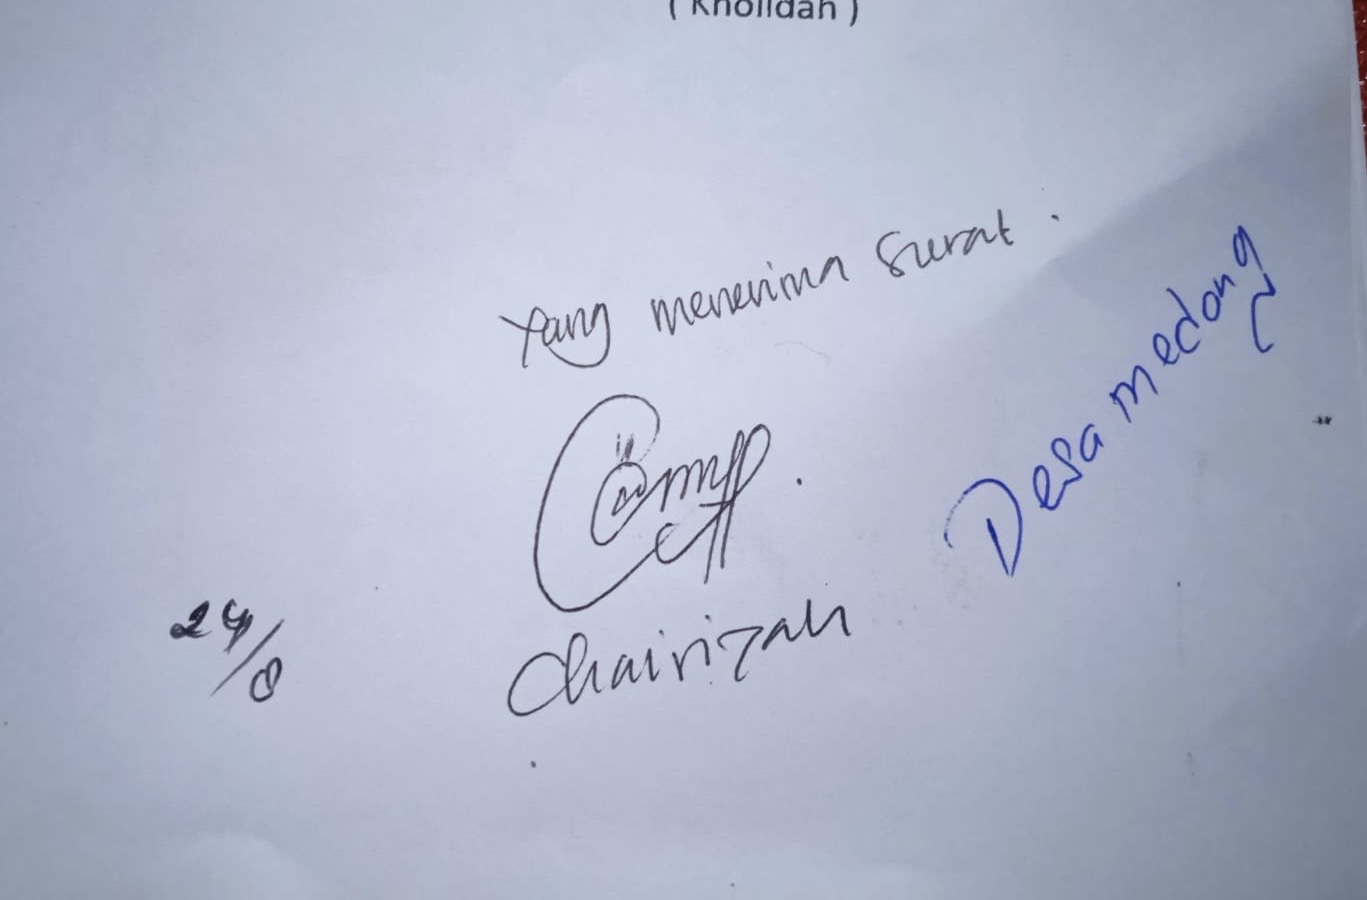 ( Kholidah )
Yang menerima Surat .
Desa medong
Chairizah
24/8